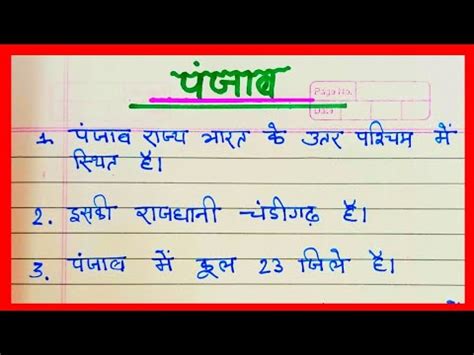 पंजाब
Page No.
Date
1. पंजाब राज्य भारत के उतर पश्चिम में
स्थित है।
2. इसकी राजधानी चंडीगढ़ है।
3. पंजाब में कूल 23 जिले है।